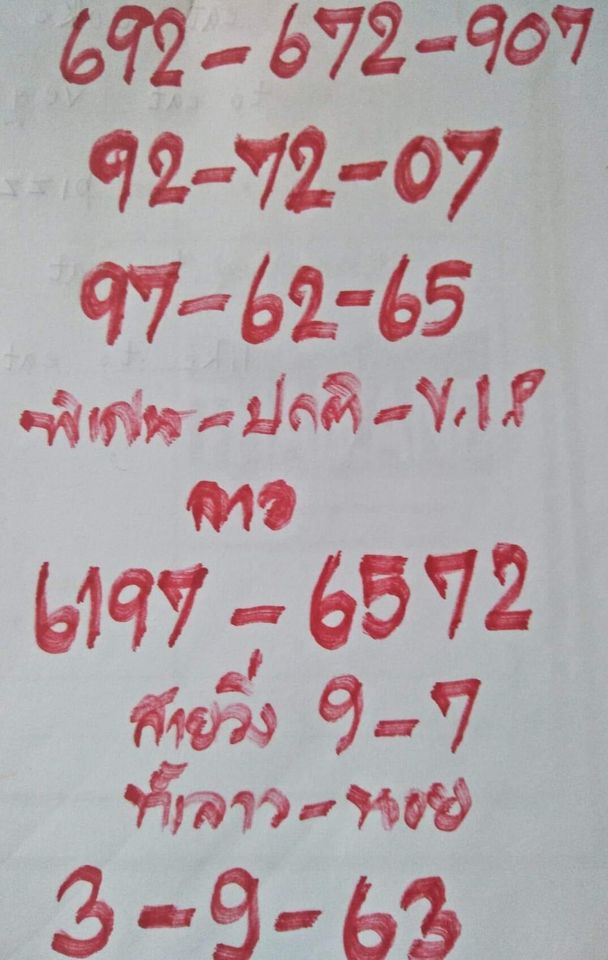 692-672-907
92-72-07
97-62-65
พิเศษ-ปกติ-V.I.P
ลาว
6197-6572
สายวิ่ง 9-7
ทั้งลาว-หอย
3-9-63